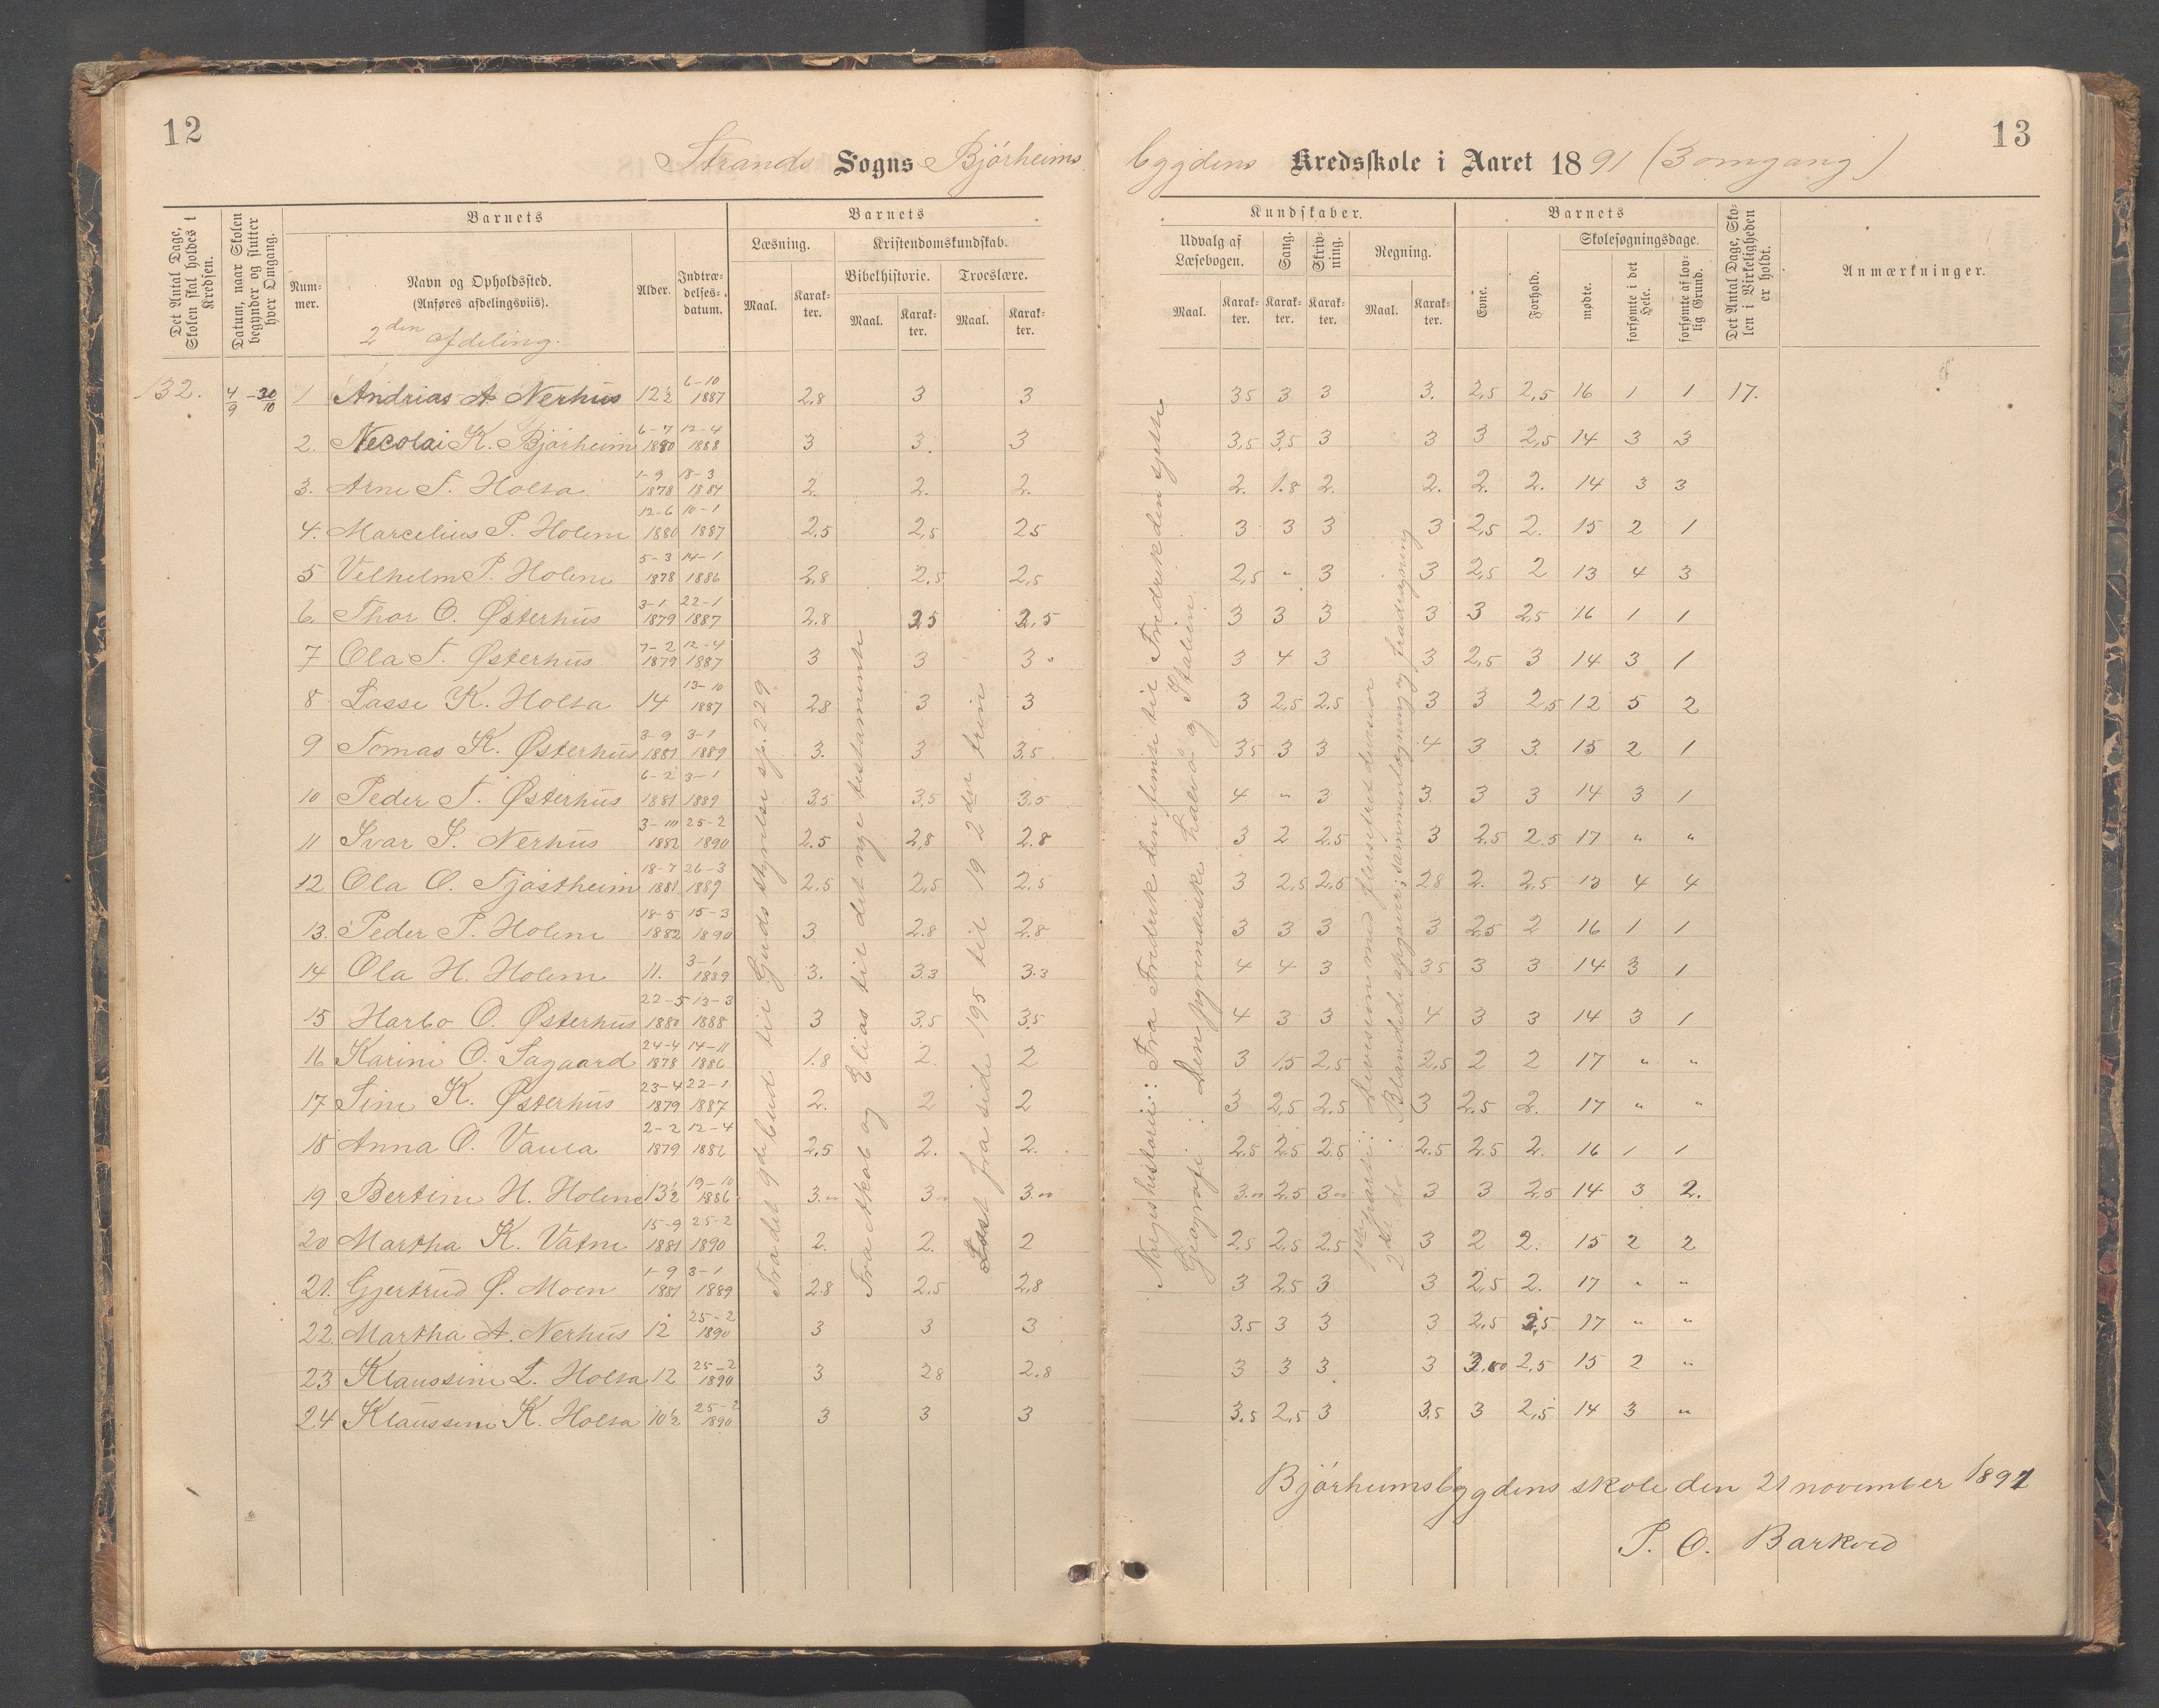 12
13
Strands Sogns Bjórheims
bygdens Kredsskole i Aaret 1891 (3 omgang)
Det Antal Dage, Skolen skal holdes i Kredsen.
Datum, naar Skolen begynder og slutter hver Omgang.
Barnets
Nummer.
Navn og Opholdssted.
(Anføres afdelingsviis).
2den afdeling.
Alder.
Indtrædelses-datum.
Barnets
Læsning.
Maal.
Karakter.
Kristendomskundskab.
Bibelhistorie.
Maal.
Karakter.
Troeslære.
Maal.
Karakter.
Kundskaber.
Udvalg af Læsebogen.
Maal.
Karakter.
Sang.
Karakter.
Skrivning.
Karakter.
Regning.
Maal.
Karakter.
Barnets
Evne.
Forhold.
Skolesøgningsdage.
mødte.
forsømte i det Hele.
forsømte af lovlig Grund.
Det Antal Dage, Skolen i Virkeligheden er holdt.
Anmærkninger.
132. 4/9 - 30/10 1 Andrias A. Nerhus 12½ 6-10 1887 2.8 3 3 35 3 3 3. 2,5 2,5 16 1 1 17.
2. Necolai K. Bjórheim 6-7 1880 12-4 1888 3 3. 3 3,5 3,5 3 3 3 2,5 14 3 3
3. Arne T. Holta 1-9 1878 18-3 1884 2. 2. 2. 2. 1.8 2. 2. 2. 2. 14 3 3
4. Marcelius P. Holene 12-6 1880 10-1 1887 2,5 2,5 25 3 3 3 3 2,5 2. 15 2 1
5 Velhelm P. Holene 5-3 1878 14-1 1886 2,8 2,5 2,5 2,5 " 3 3 2,5 2 13 4 3
6. Thor O. Østerhus 3-1 1879 22-1 1887 2.8 25 2,5 3 3 3 3 3 25 16 1 1
7 Ola T. Østerhus 7-2 1879 12-4 1887 3 3 3 3 4 3 3 2,5 3 14 3 1
8 Lasse K. Holta 14 13-10 1887 28 3 3 3 2,5 2.5 3 3 2,5 12 5 2
9 Tomas K. Østerhus 3-9 1881 3-1 1889 3. 3 3,5 35 3 3 4 3 3. 15 2 1
10 Peder T. Østerhus 6-2 1881 3-1 1889 3.5 3,5 3,5 4 " 3 3. 3 3 14 3 1
11 Ivar I. Nerhus 3-10 1882 25-2 1890 2.5 2,8 2.8 3 2 2.5 3 2.5 2.5 17 " "
12 Ola O. Tjóstheim 18-7 1881 26-3 1889 2.5 2,5 2.5 3 2,5 2,5 28 2. 2,5 13 4 4
13. Peder P. Holene 18-5 1882 15-3 1890 3 2.8 2.8 3 3 3 3 2.5 2 16 1 1
14 Ola H. Holene 11. 3-1 1889 3. 3.3 3.3 4 4 3 35 3 3 14 3 1
15 Harbo O. Østerhus 22-5 1880 13-3 1888 3 3,5 3,5 4 3 3 4 3 3 14 3 1
16 Karine O. Sagaard 24-4 1878 14-11 1886 1.8 2. 2 3 1.5 2.5 2,5 2 2 17 " "
17 Sine K. Østerhus 23-4 1879 22-1 1887 2. 2 2 3 2,5 2.5 3 2.5 2. 17 " "
18 Anna O. Vaula 2-2 1879 12-4 1886 2,5 2. 2. 2.5 2.5 2.5 2.5 2.5 2. 16 1 1
19 Bertine H. Holene 13½ 19-10 1886 3.00 3.00 3.00 3.00 2.5 3.00 3 3 2,5 14 3 2.
20 Martha K. Vatne 15-9 1881 25-2 1890 2. 2. 2 2.5 2.5 2.5 3 2 2. 15 2 2
21. Gjertrud Ø. Moen 1-9 1881 3-1 1889 2.8 2.5 2,8 3 2.5 3 3 2,5 2. 17 " "
22. Martha A. Nerhus 12 25-2 1890 3 3 3 3.5 3 3 3 2.5 2,5 17 " "
23 Klaussine L. Holta 12 25-2 1890 3 28 2.8 3 3 3 3 3.00 2,5 15 2 "
24 Klaussine K. Holta 10½ 25-2 1890 3 3 3 3.5 2,5 3 3.5 3 2,5 14 3 "
Fra det 9de bud til Guds styrelse sp. 229
Fra Akab og Elias til det nye testamente
Læst fra side 195 til 19 2den trin
Norges historie: Fra Fredrik den femte til Fredrik den sjette
Geografi: Den pyrenæiske halvó og Italien.
1ste parti: Devesjon med flersifret devisor
2det do: Blandede opgaver; sammenlægning og fradragning
Bjórheimsbygdens skole den 21 november 1891
P. O. Barkved